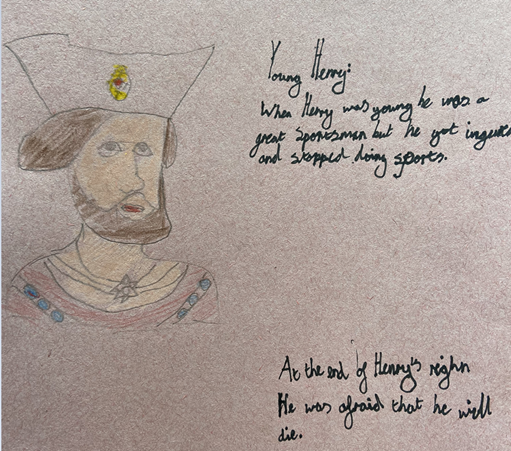 Young Henry:
When Henry was young he was a
great sportsman but he got ingure
and stopped doing sports.
At the end of Henry's reighn
He was afraid that he will
die.